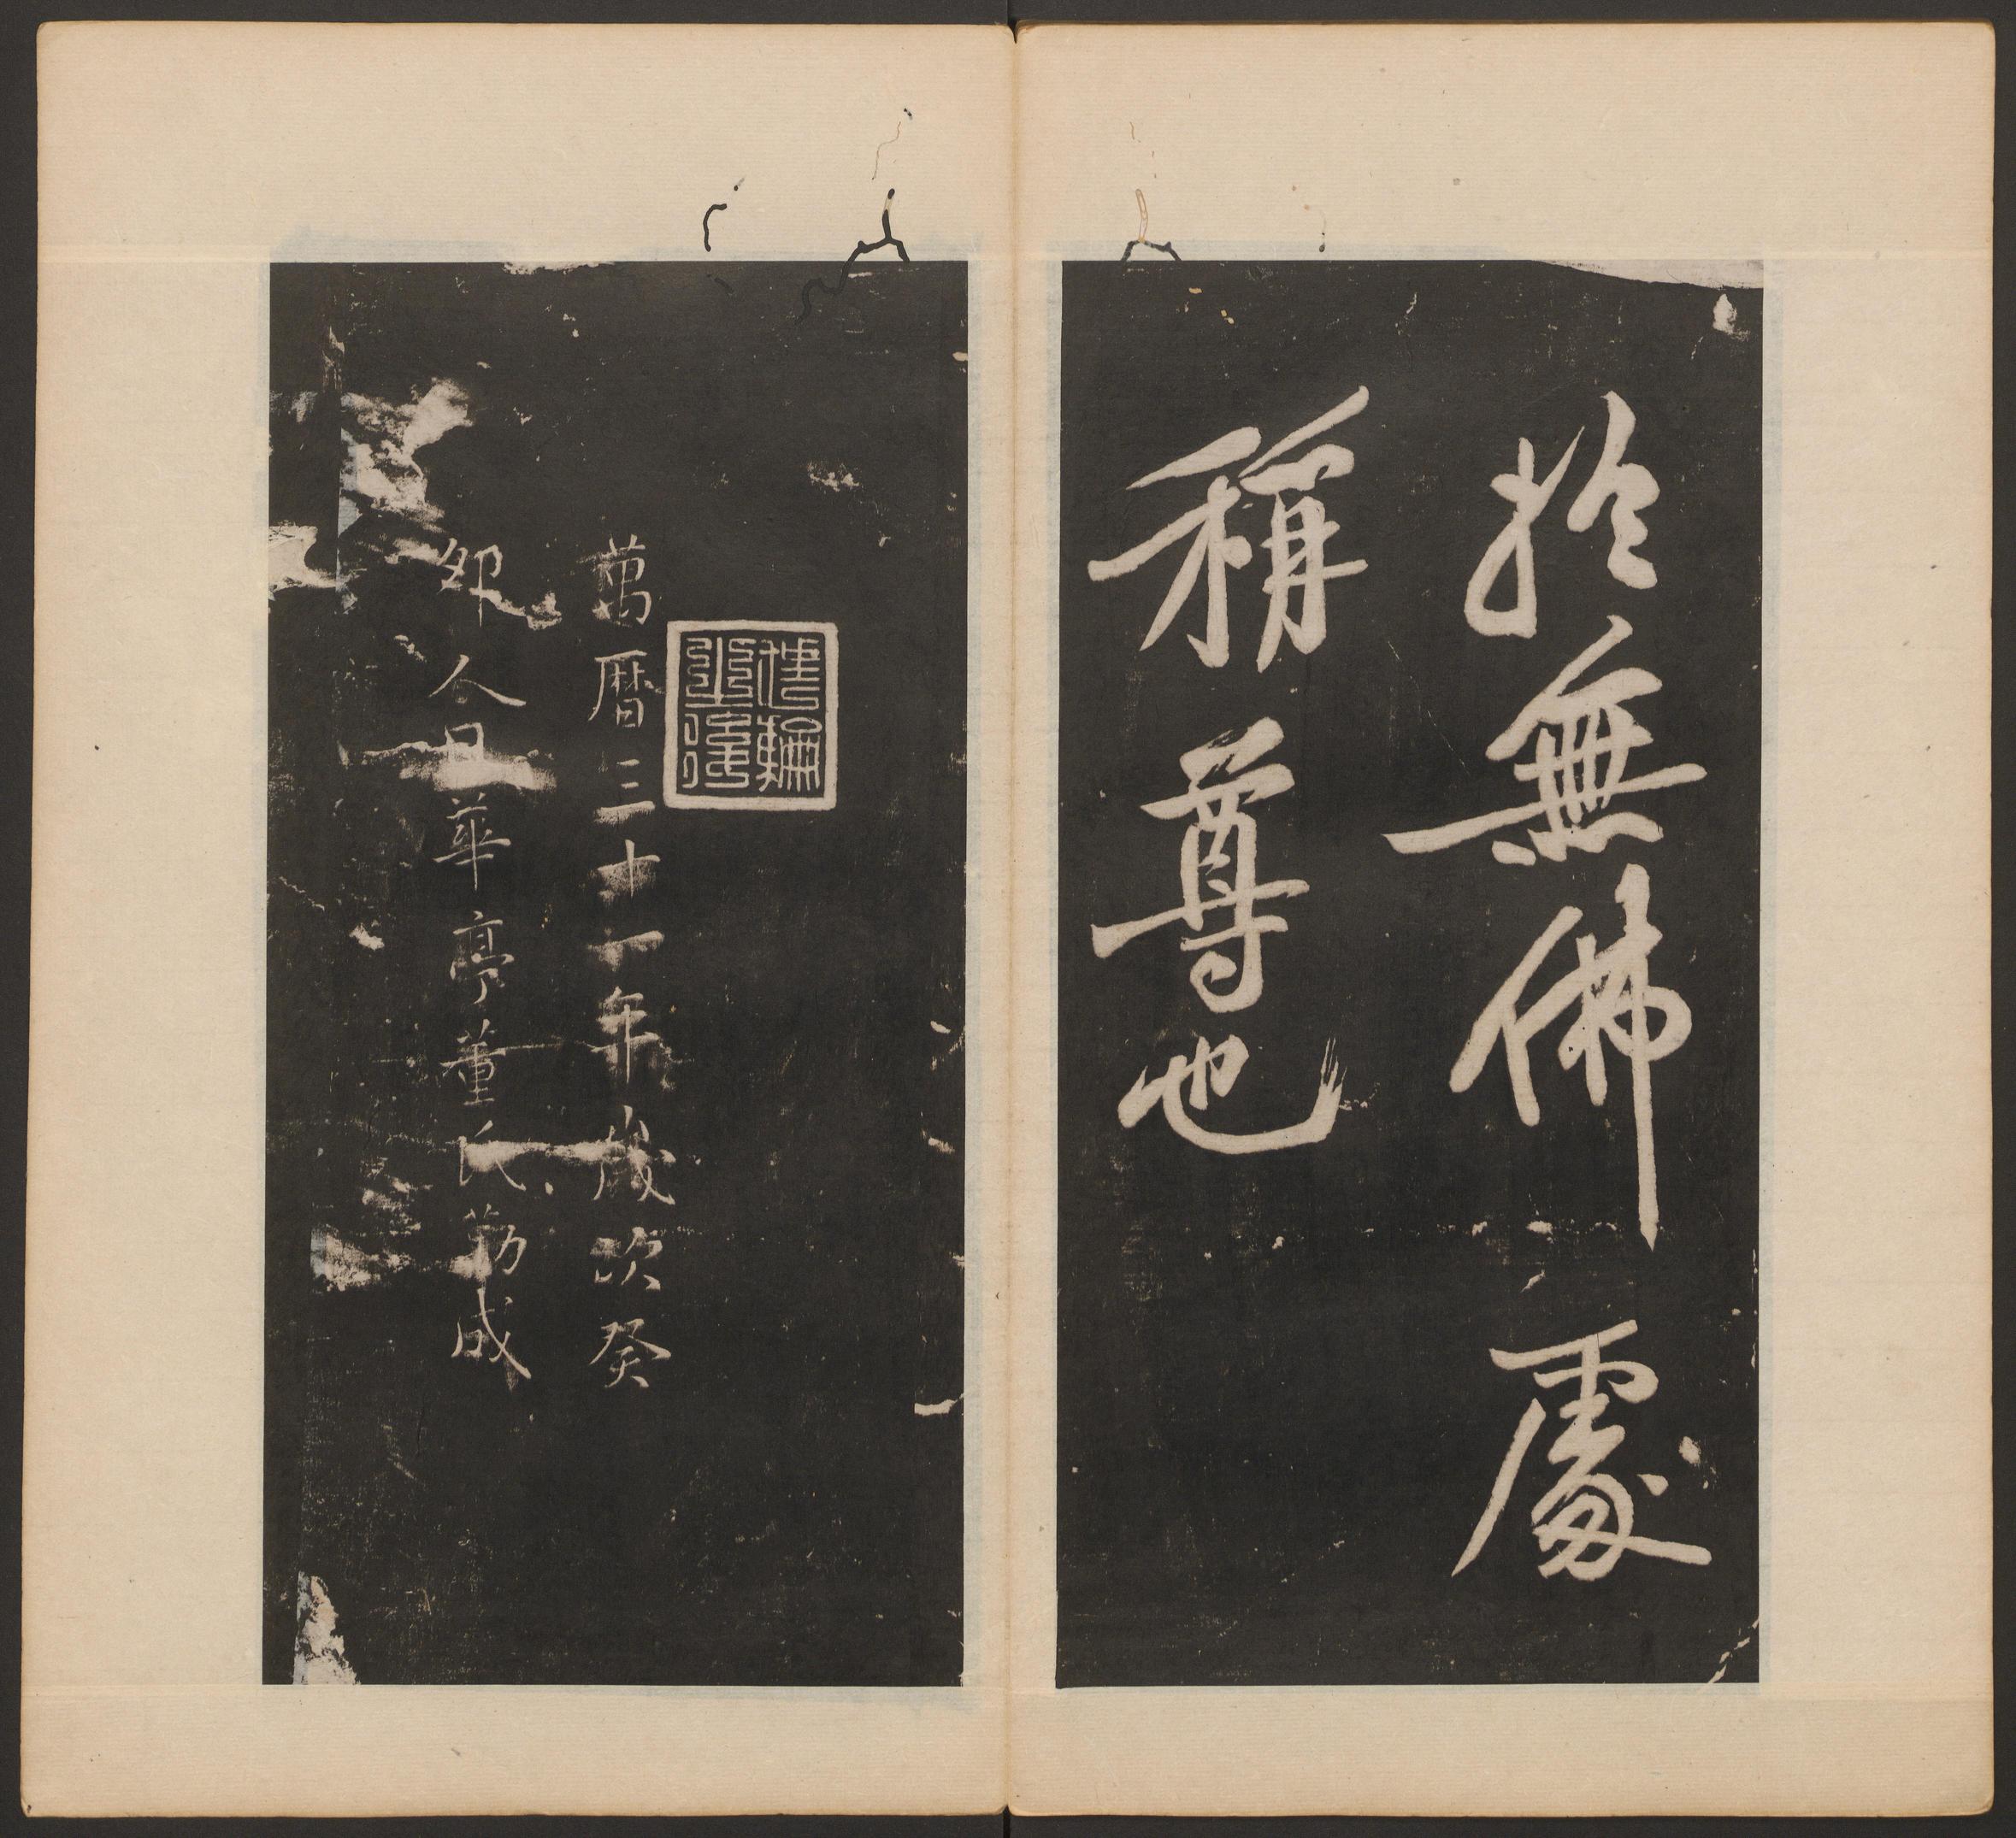 於無佛處
稱尊也
萬曆三十一年歲次癸
卯人日華亭董氏勒成